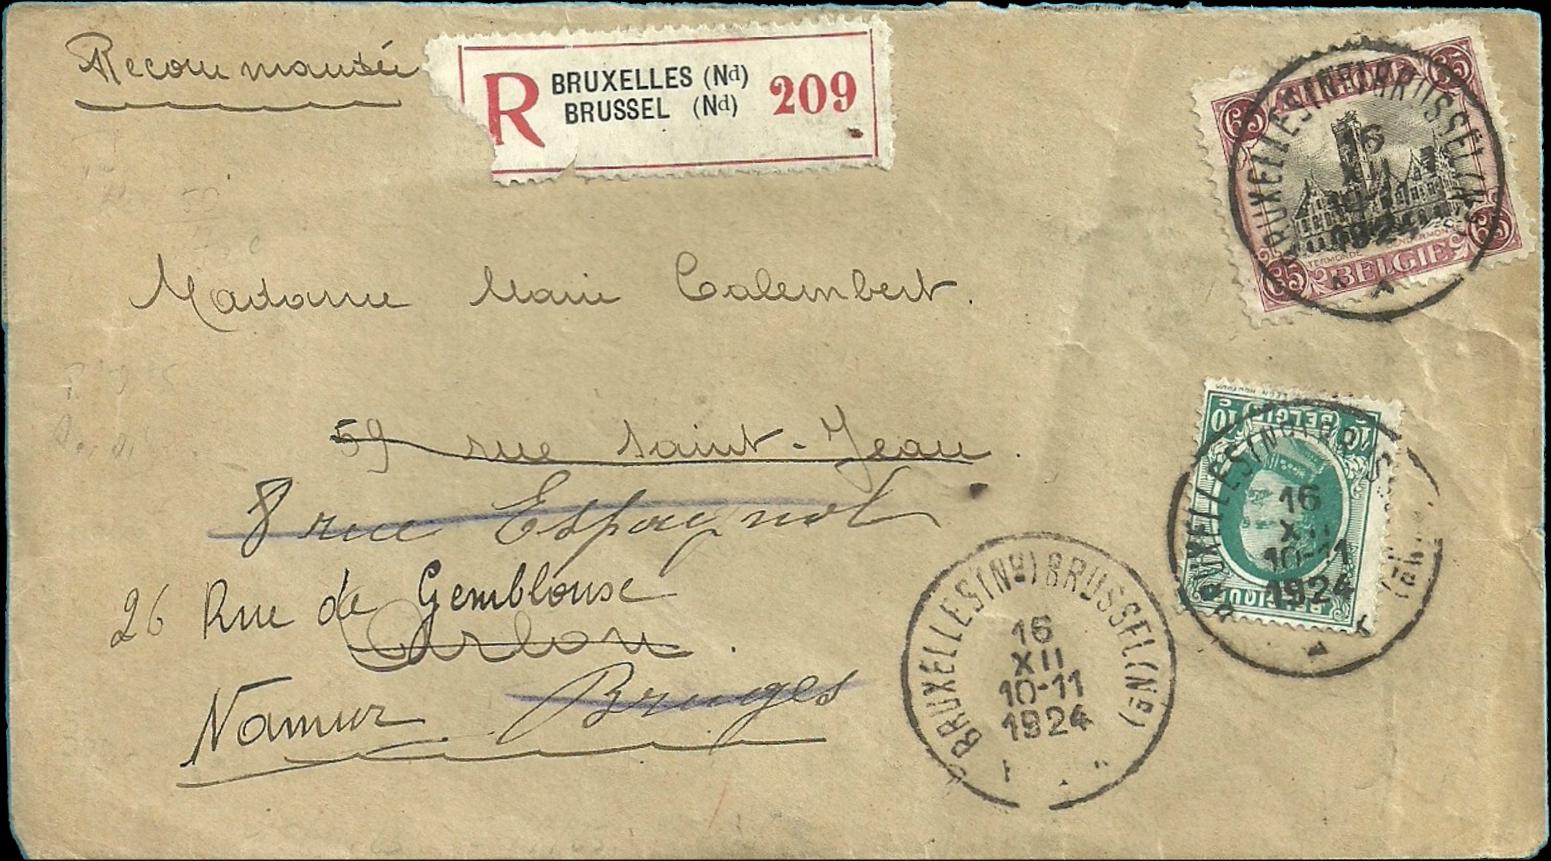 Recommandée
R BRUXELLES (Nd) 209
BRUSSEL (Nd)
65 65
TERMONDE DENDERMONDE
65 BELGIE 65
BRUXELLES (Nd) BRUSSEL (Nd)
16
XII
1924
Madame Marie Calembert.
59 rue Saint-Jean.
8 rue Espagnol
26 Rue de Gemblouse
Arlon.
Namur Bruges
10 c BELGIE 10 c
BELGIQUE
BRUXELLES (Nd) BRUSSEL (Nd)
16
XII
10-11
1924
BRUXELLES (Nd) BRUSSEL (Nd)
16
XII
10-11
1924